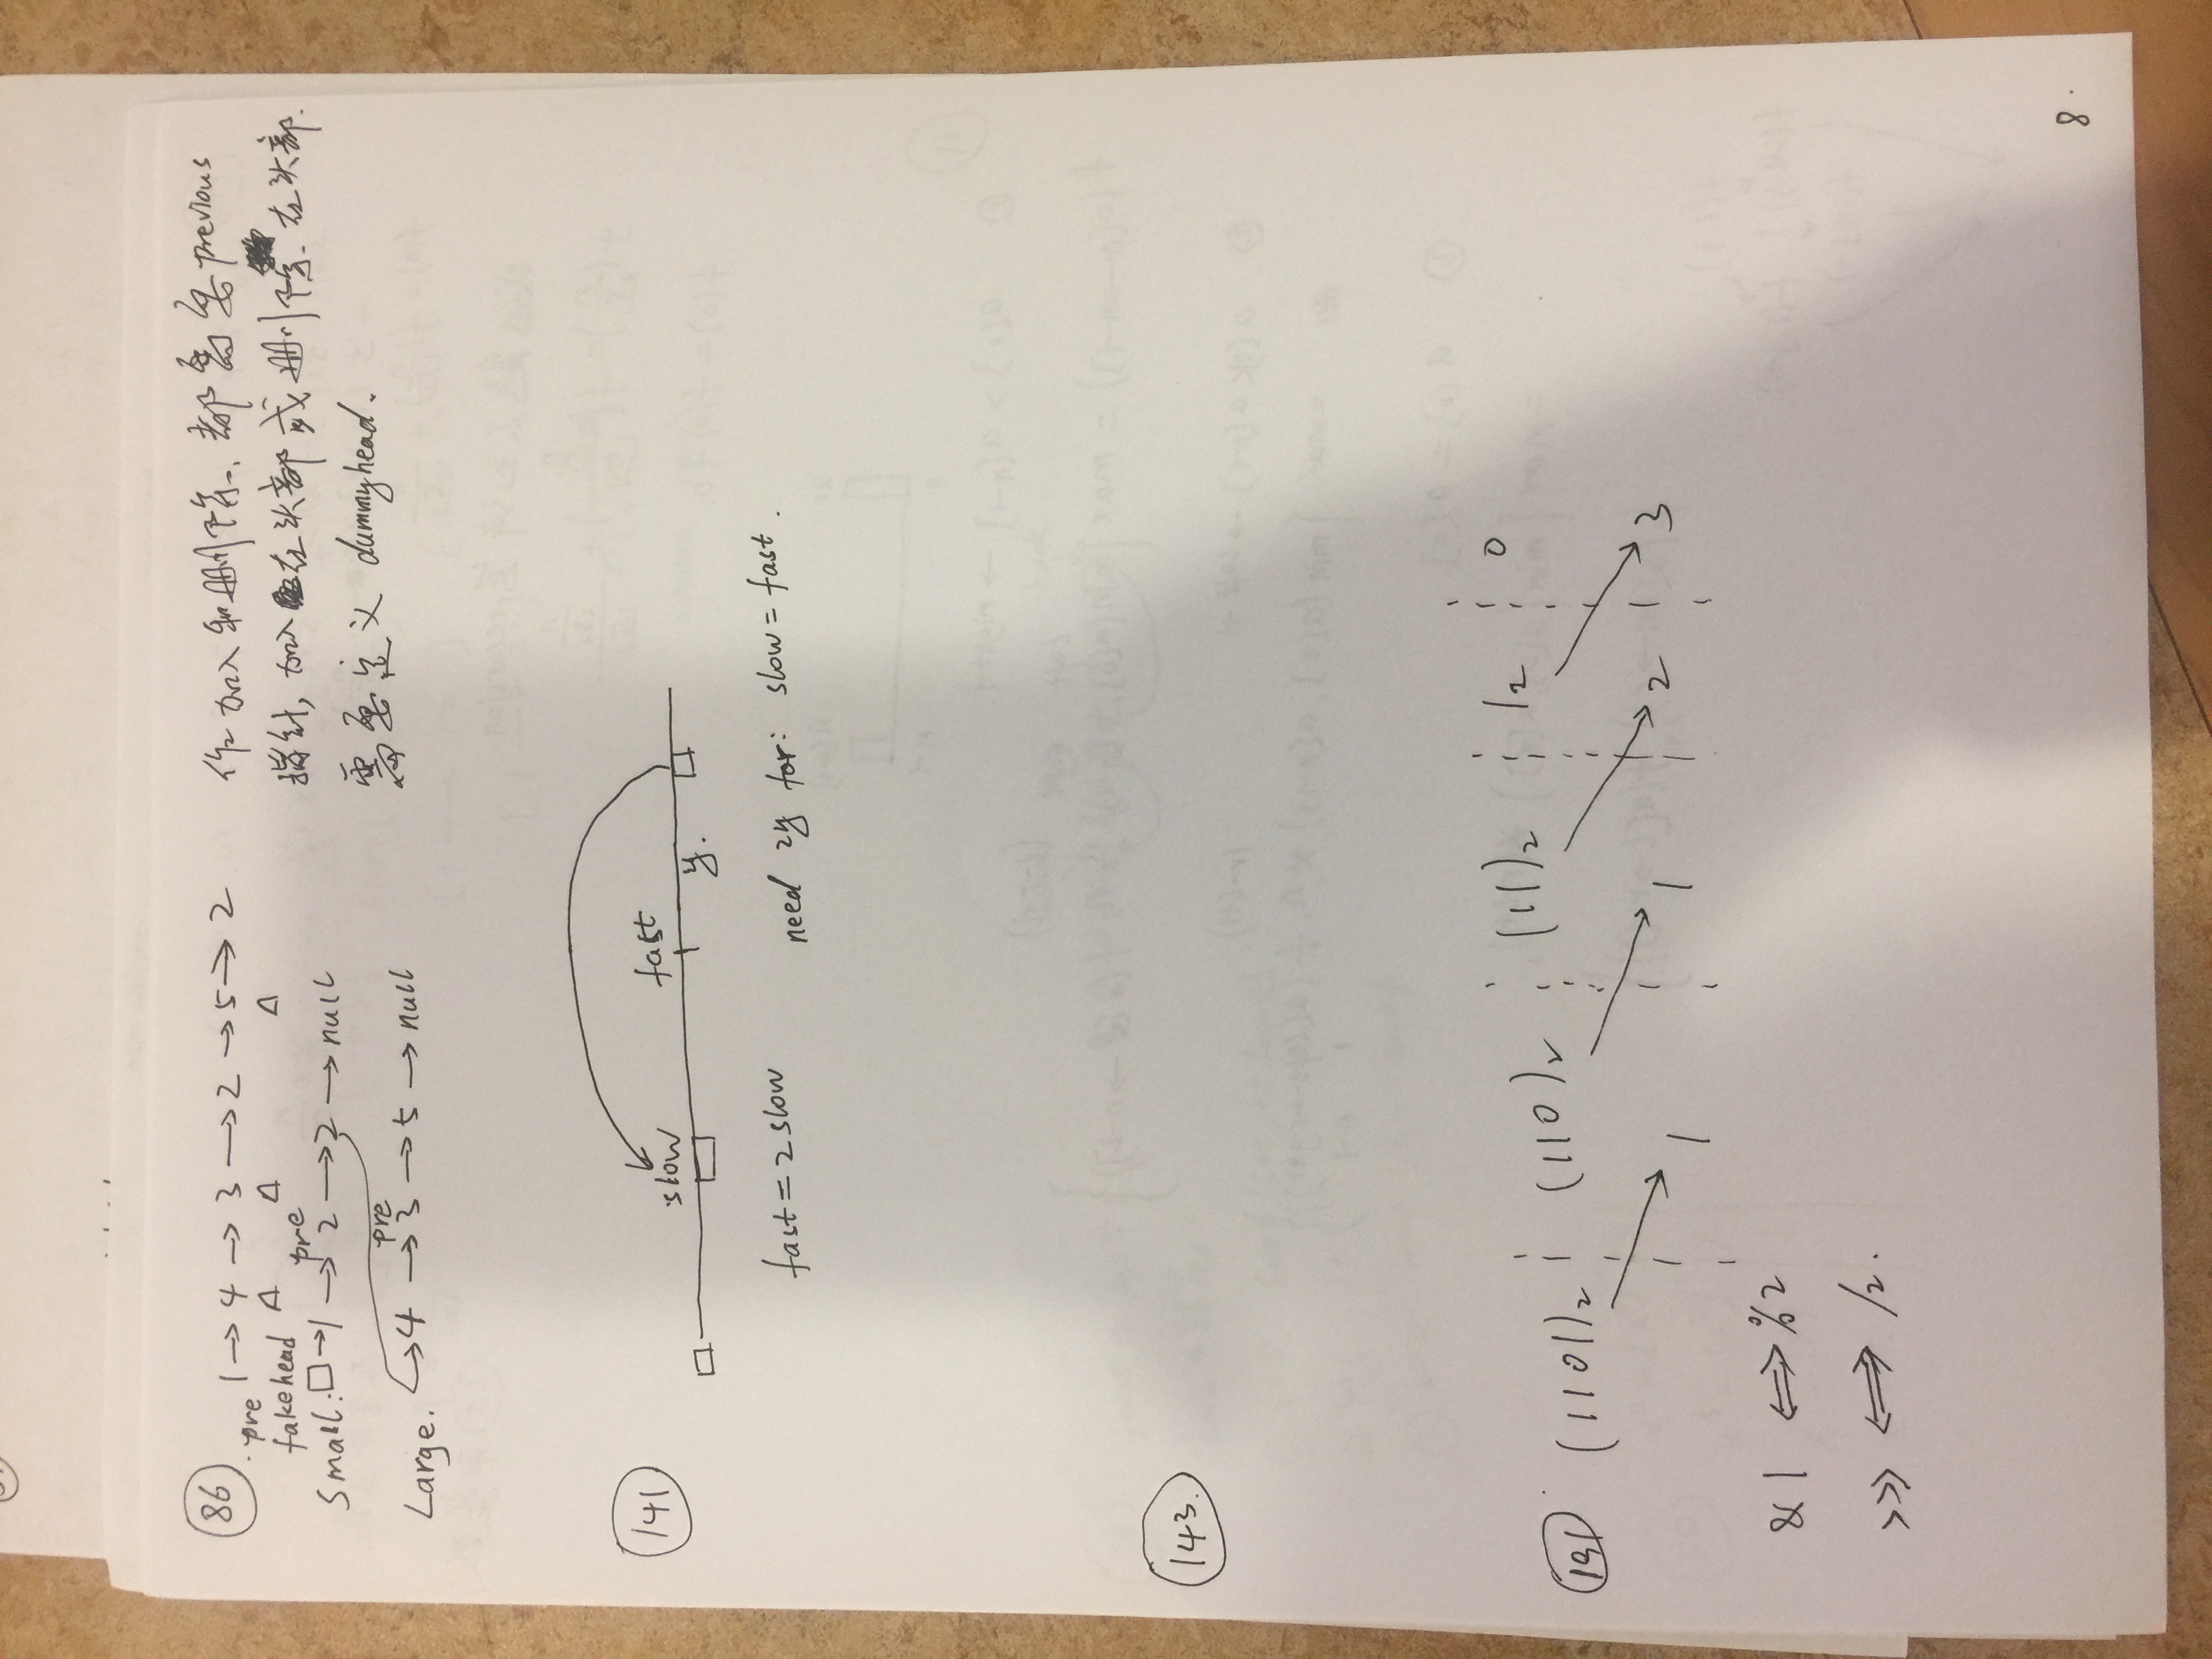 86
1 → 4 → 3 → 2 → 5 → 2
pre
fakehead △ △ △
pre
Small: □ → 1 → 2 → 2 → null
pre
Large. → 4 → 3 → 5 → null
作加入和删除, 都需要 previous
指针, 加入在头部或删除在头部.
需要定义 dummyhead.
141
slow fast
y.
fast = 2 slow need 2y for: slow = fast.
143.
191 (1101)₂ (110)₂ (11)₂ 1₂ 0
1 1 2 3
& 1 ⟺ %2
>>> ⟺ /2.
8.